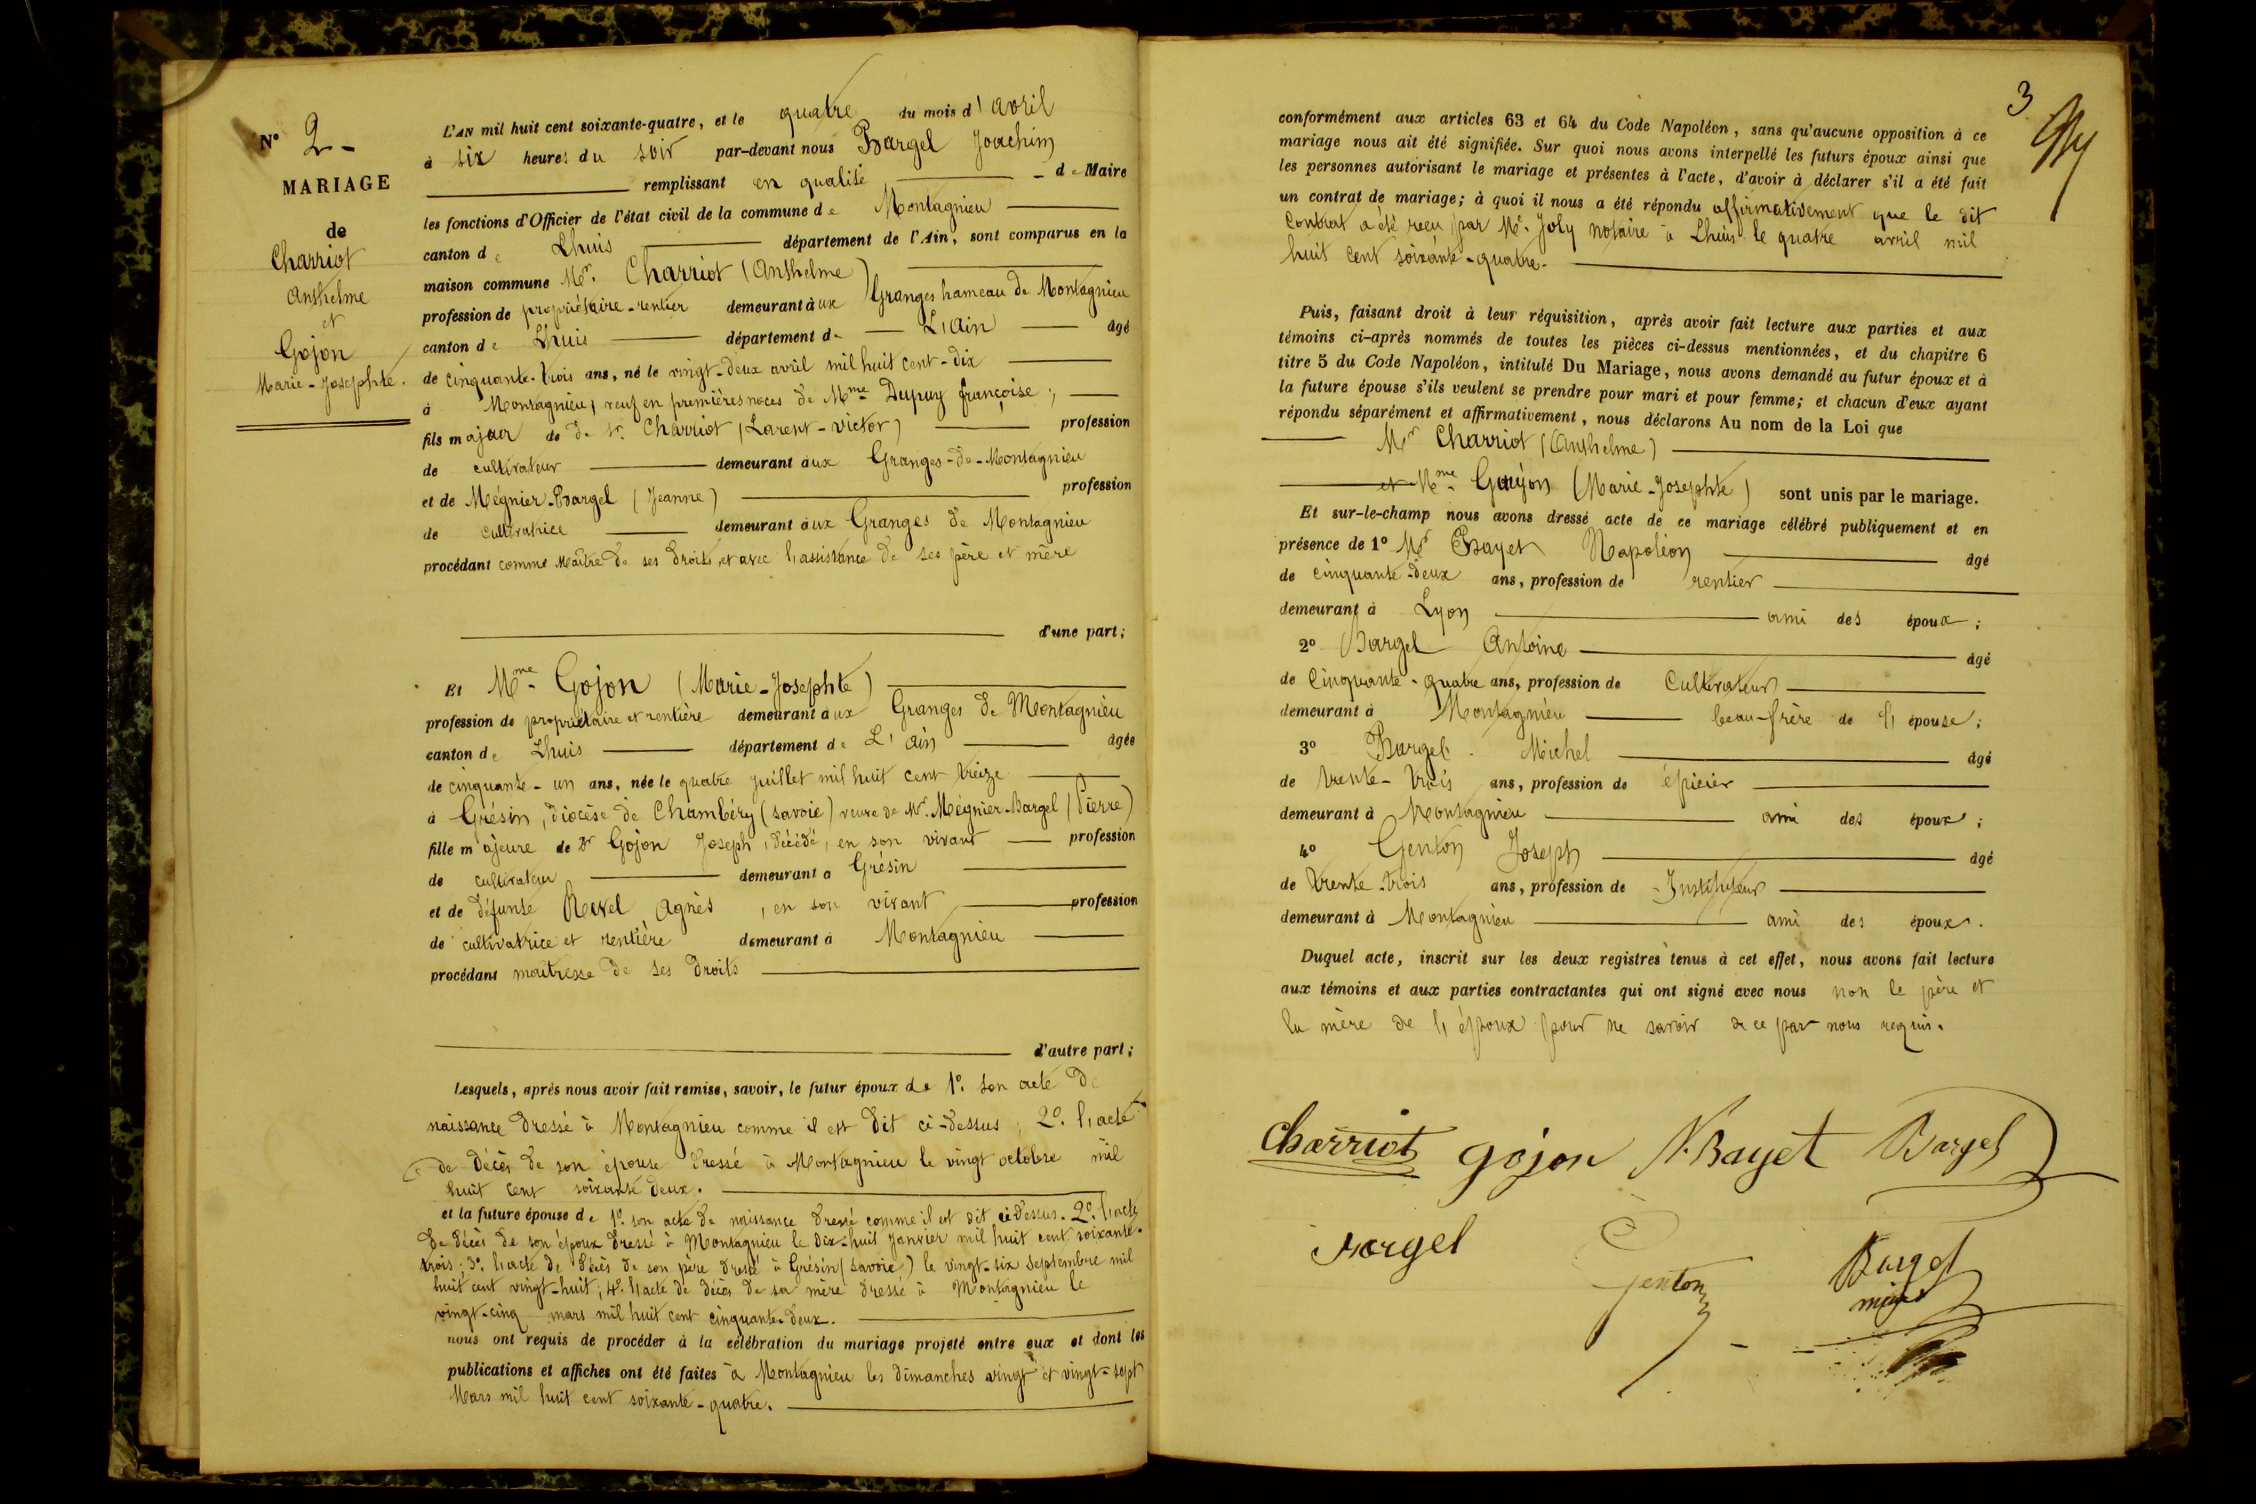 N° 2 -
MARIAGE
de
Charriot
Anthelme
et
Gojon
Marie-Josephte.
L'AN mil huit cent soixante-quatre, et le quatre du mois d'avril
à six heures du soir par-devant nous Bargel Joachim
remplissant en qualité de Maire
les fonctions d'Officier de l'état civil de la commune de Montagnieu
canton de Lhuis département de l'Ain, sont comparus en la
maison commune Mr. Charriot (Anthelme)
profession de propriétaire-rentier demeurant à ux Granges hameau de Montagnieu
canton de Lhuis département de L'Ain âgé
de cinquante-trois ans, né le vingt-deux avril mil huit cent-dix
à Montagnieu, veuf en premières noces de Mme Dupuy françoise,
fils majeur de de Sr. Charriot (Larent-victor) profession
de cultivateur demeurant à ux Granges-de-Montagnieu
et de Mégnier-Bargel (Jeanne) profession
de cultivatrice demeurant à ux Granges de Montagnieu
procédant comme Maître de ses droits, et avec l'assistance de ses père et mère
d'une part;
Et Mme Gojon (Marie-Josephte)
profession de propriétaire et rentière demeurant à ux Granges de Montagnieu
canton de Lhuis département de L'ain âgée
de cinquante-un ans, née le quatre juillet mil huit cent treize
à Grésin, diocèse de Chambéry (savoie) veuve de Mr. Mégnier-Bargel (Pierre)
fille majeure de Sr Gojon Joseph, décédé, en son vivant profession
de cultivateur demeurant a Grésin
et de défunte Revel Agnès, en son vivant profession
de cultivatrice et rentière demeurant à Montagnieu
procédant maitresse de ses droits
d'autre part;
Lesquels, après nous avoir fait remise, savoir, le futur époux de 1° son acte de
naissance dressé à Montagnieu comme il est dit ci-dessus, 2° l'acte
de décès de son épouse dressé à Montagnieu le vingt octobre mil
huit cent soixante deux.
et la future épouse de 1° son acte de naissance dressé comme il est dit ci dessus. 2° l'acte
de décès de son époux dressé à Montagnieu le dix-huit Janvier mil huit cent soixante-
trois; 3° l'acte de décès de son père dressé à Grésin (Savoie) le vingt-six Septembre mil
huit cent vingt-huit; 4° l'acte de décès de sa mère dressé à Montagnieu le
vingt-cinq mars mil huit cent cinquante-deux.
nous ont requis de procéder à la célébration du mariage projeté entre eux et dont les
publications et affiches ont été faites à Montagnieu les dimanches vingt et vingt-sept
Mars mil huit cent soixante-quatre.
3
conformément aux articles 63 et 64 du Code Napoléon, sans qu'aucune opposition à ce
mariage nous ait été signifiée. Sur quoi nous avons interpellé les futurs époux ainsi que
les personnes autorisant le mariage et présentes à l'acte, d'avoir à déclarer s'il a été fait
un contrat de mariage; à quoi il nous a été répondu affirmativement que le dit
Contrat a été reçu par Me. Joly notaire à Lhuis le quatre avril mil
huit cent soixante-quatre.
Puis, faisant droit à leur réquisition, après avoir fait lecture aux parties et aux
témoins ci-après nommés de toutes les pièces ci-dessus mentionnées, et du chapitre 6
titre 5 du Code Napoléon, intitulé Du Mariage, nous avons demandé au futur époux et à
la future épouse s'ils veulent se prendre pour mari et pour femme; et chacun d'eux ayant
répondu séparément et affirmativement, nous déclarons Au nom de la Loi que
Mr Charriot (Anthelme)
et Mme (Marie-Josephte) sont unis par le mariage.
Et sur-le-champ nous avons dressé acte de ce mariage célébré publiquement et en
présence de 1° Mr Bayet Napoléon âgé
de cinquante-deux ans, profession de rentier
demeurant à Lyon ami des époux;
2° Bargel Antoine âgé
de Cinquante-quatre ans, profession de Cultivateur
demeurant à Montagnieu beau-frère de l'épouse;
3° Bargel Michel âgé
de trente-trois ans, profession de épicier
demeurant à Montagnieu ami des époux;
4° Genton Joseph âgé
de trente-trois ans, profession de Instituteur
demeurant à Montagnieu ami des époux.
Duquel acte, inscrit sur les deux registres tenus à cet effet, nous avons fait lecture
aux témoins et aux parties contractantes qui ont signé avec nous non le père et
la mère de l'époux pour ne savoir de ce par nous requis.
Charriot gojon N. Bayet Bargel
Bargel Genton Bargel
maire